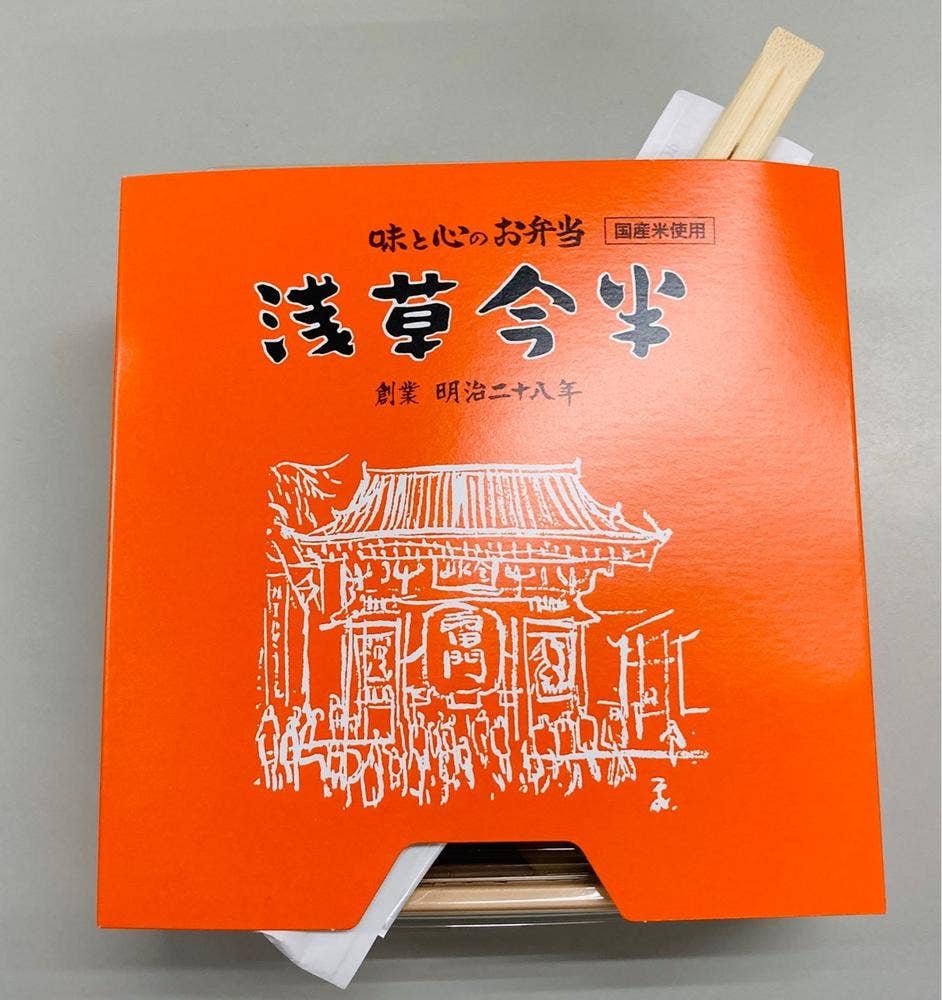 味と心のお弁当 国産米使用
浅草今半
創業 明治二十八年
雷門